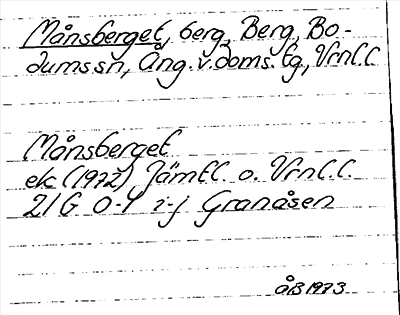 Månsberget, berg, Berg, Bo-
dums sn, Ång. v. doms. tg, Vrnl.l.
Månsberget
ek (1972) Jämtl. o. Vrnl.l.
21G 0-1 i-j Granåsen
ÅB 1973